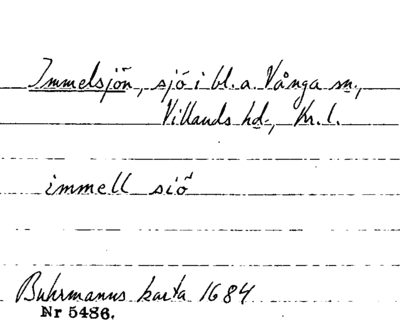 Immelsjön, sjö i bl.a. Vånga sn.,
Villands hd., Kr. l.
immell siö
Buhrmanns karta 1684
Nr 5486.